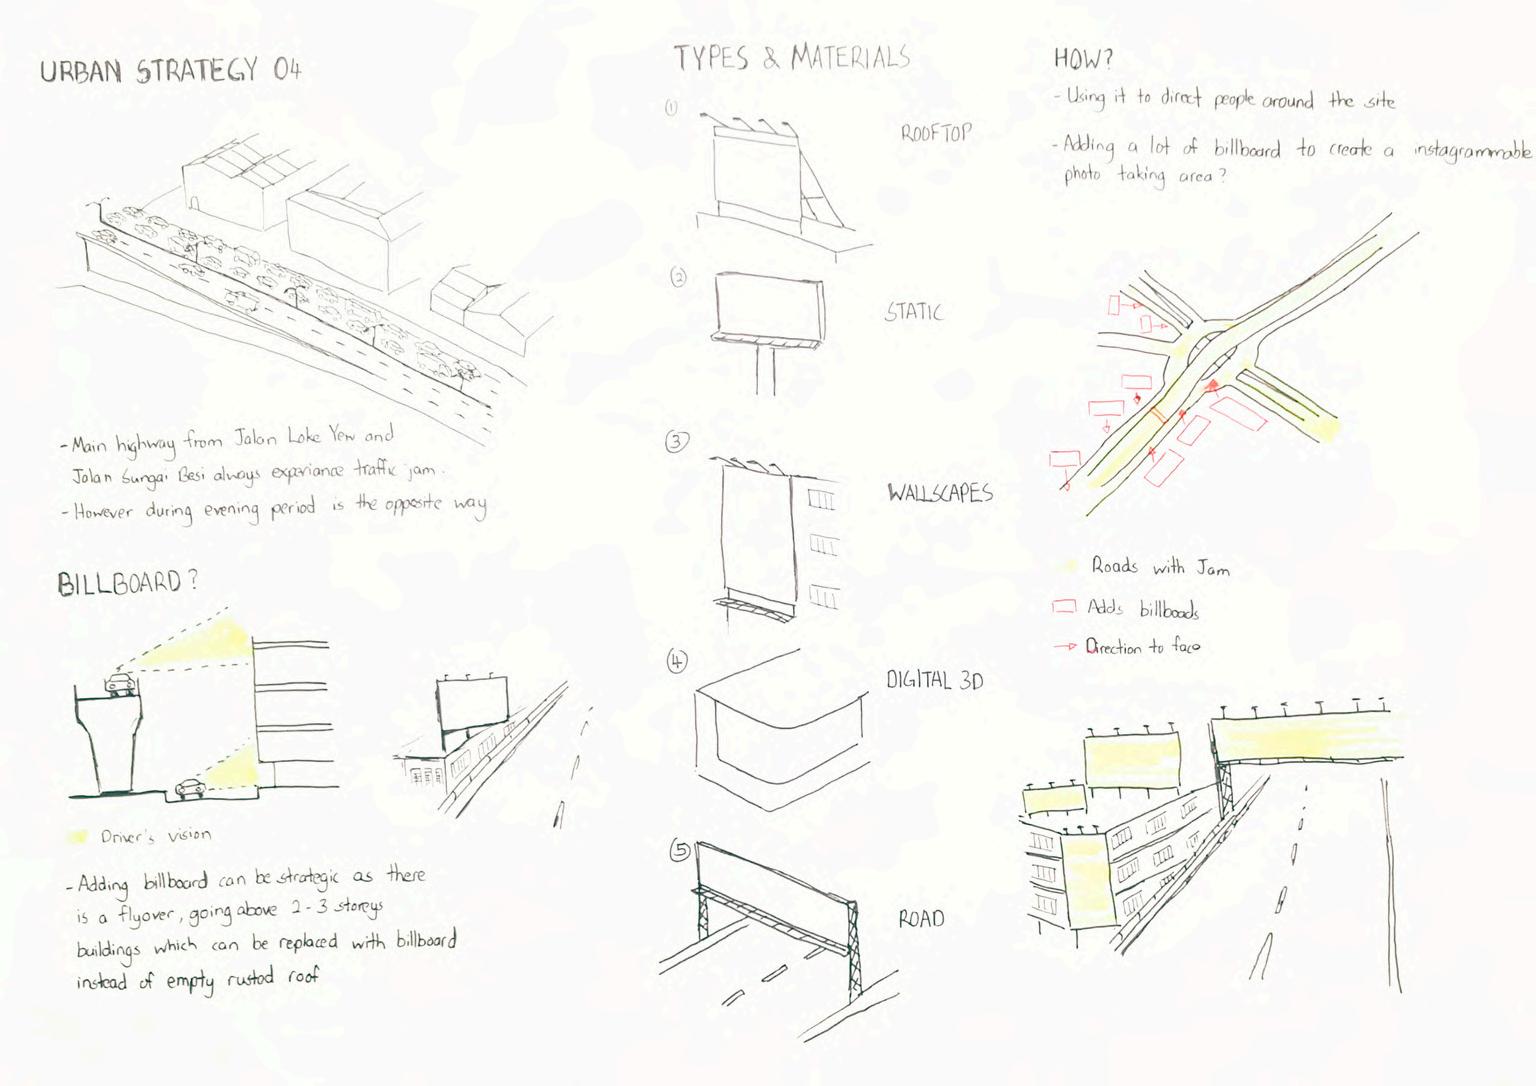 URBAN STRATEGY 04
- Main highway from Jalan Loke Yew and
Jalan Sungai Besi always experiance traffic jam.
- However during evening period is the opposite way
BILLBOARD?
Driver's vision
- Adding billboard can be strategic as there
is a flyover, going above 2-3 storeys
buildings which can be replaced with billboard
instead of empty rusted roof
TYPES & MATERIALS
1
ROOFTOP
2
STATIC
3
WALLSCAPES
4
DIGITAL 3D
5
ROAD
HOW?
- Using it to direct people around the site
- Adding a lot of billboard to create a instagrammable
photo taking area?
Roads with Jam
Adds billboads
Direction to face